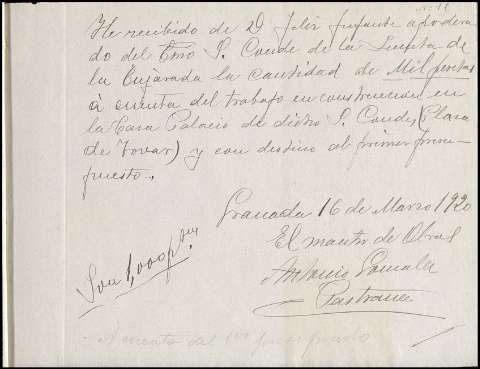 Nº 1º
He recibido de D Felix Infante apodera-
do del Exmo S. Conde de la Puebla de
la cantidad de Mil pesetas
á cuenta del trabajo en construccion en
la Casa Palacio de dicho S. Conde, (Plaza
de Tovar) y con destino al primer presu-
puesto.
Granada 16 de Marzo 1920
El maestro de Obras
Antonio
Pastrana
Son 1,000 ptas.
A cuenta del 1er presupuesto